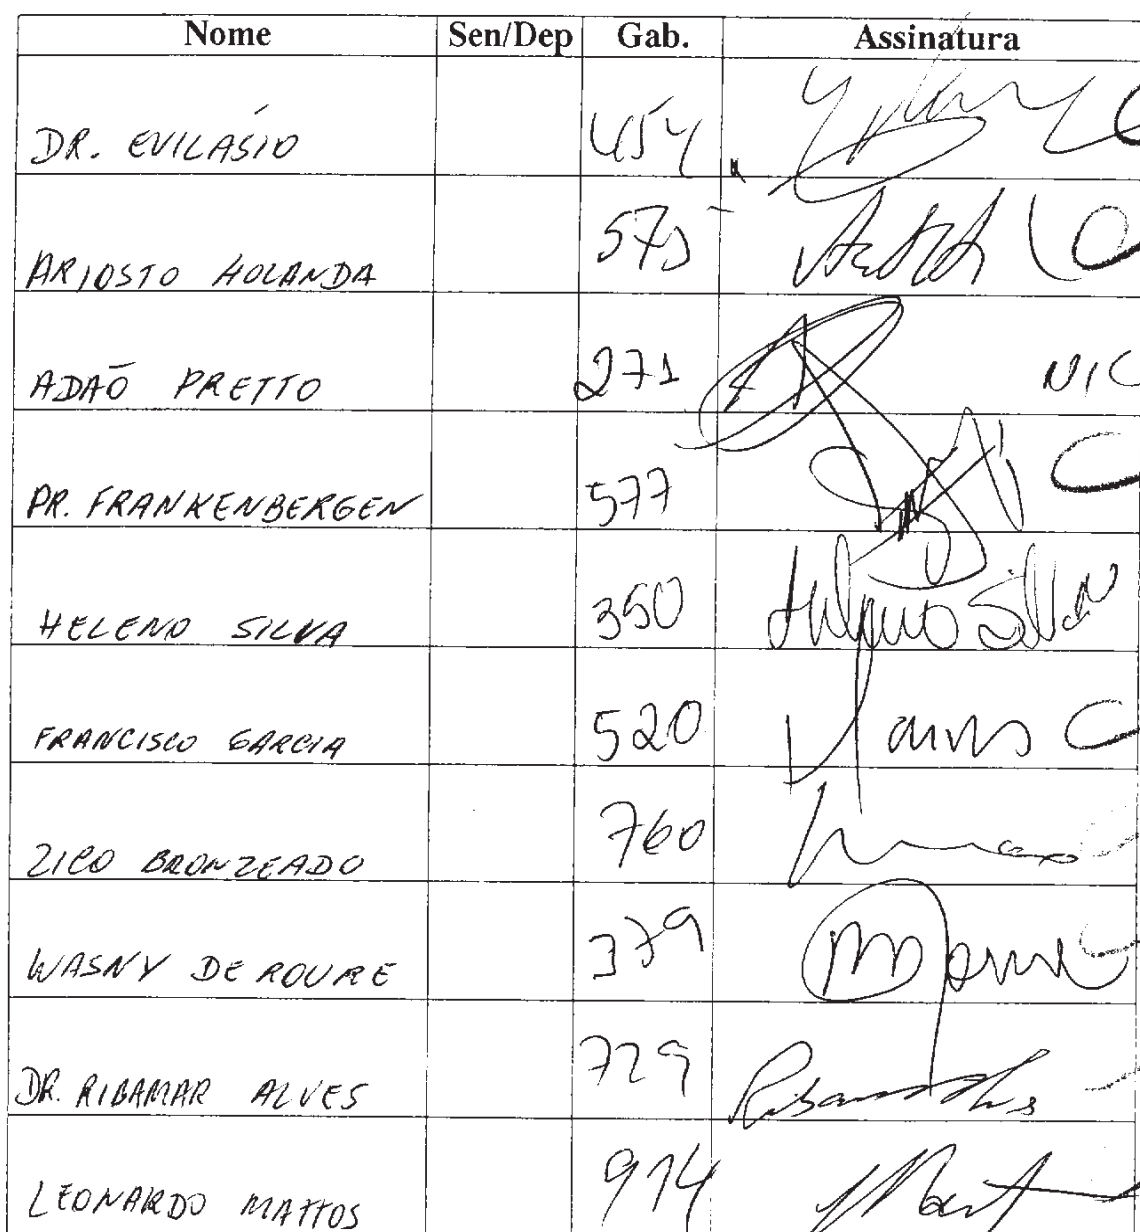 Nome Sen/Dep Gab. Assinatura
DR. EVILÁSIO 454
ARIOSTO HOLANDA 575
ADAÕ PRETTO 271 NIC
PR. FRANKENBERGEN 577
HELENO SILVA 350 Heleno Silva
FRANCISCO GARCIA 520
ZICO BRONZEADO 760
WASNY DE ROURE 379
DR. RIBAMAR ALVES 729
LEONARDO MATTOS 914